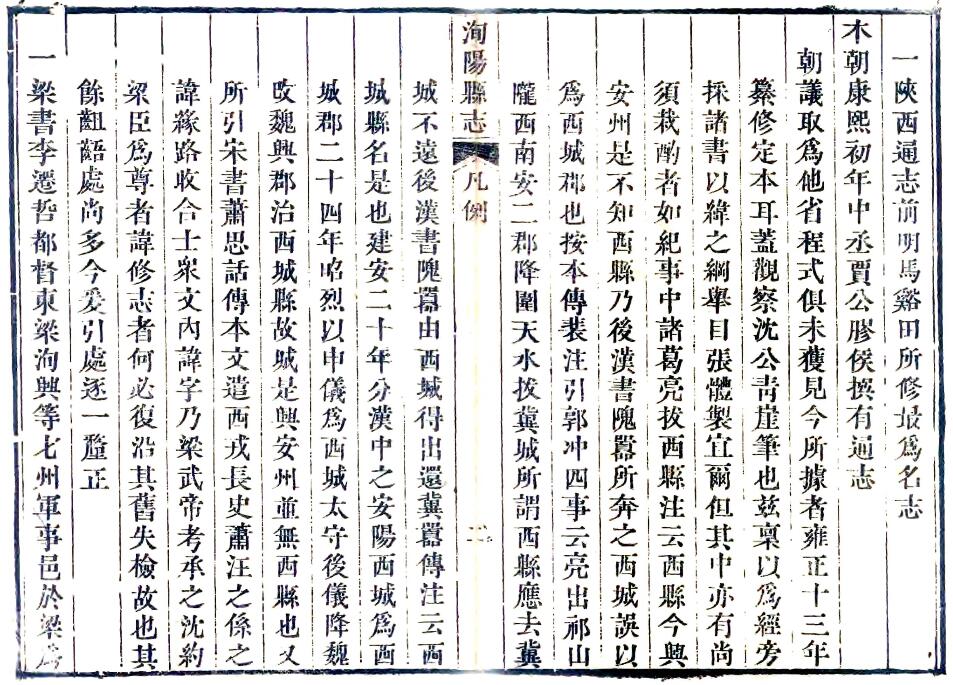 一陝西通志前明馬谿田所修最爲名志
本朝康熙初年中丞賈公膠侯撰有通志
朝議取爲他省程式俱未獲見今所據者雍正十三年
纂修定本耳蓋觀察沈公靑崖筆也玆稟以爲經旁
採諸書以緯之綱舉目張體製宜爾但其中亦有尚
須裁酌者如紀事中諸葛亮拔西縣注云西縣今興
安州是不知西縣乃後漢書隗囂所奔之西城誤以
爲西城郡也按本傳裴注引郭冲四事云亮出祁山
隴西南安二郡降圍天水拔冀城所謂西縣應去冀
洵陽縣志
凡例
二
城不遠後漢書隗囂由西城得出還冀囂傳注云西
城縣名是也建安二十年分漢中之安陽西城爲西
城郡二十四年昭烈以申儀爲西城太守後儀降魏
改魏興郡治西城縣故城是興安州並無西縣也又
所引宋書蕭思話傳本文遣西戎長史蕭汪之係之
諱緣路收合士衆文內諱字乃梁武帝考承之沈約
梁臣爲尊者諱修志者何必復沿其舊失檢故也其
餘齟齬處尚多今爰引處逐一釐正
一梁書李遷哲都督東梁洵興等七州軍事邑於梁爲